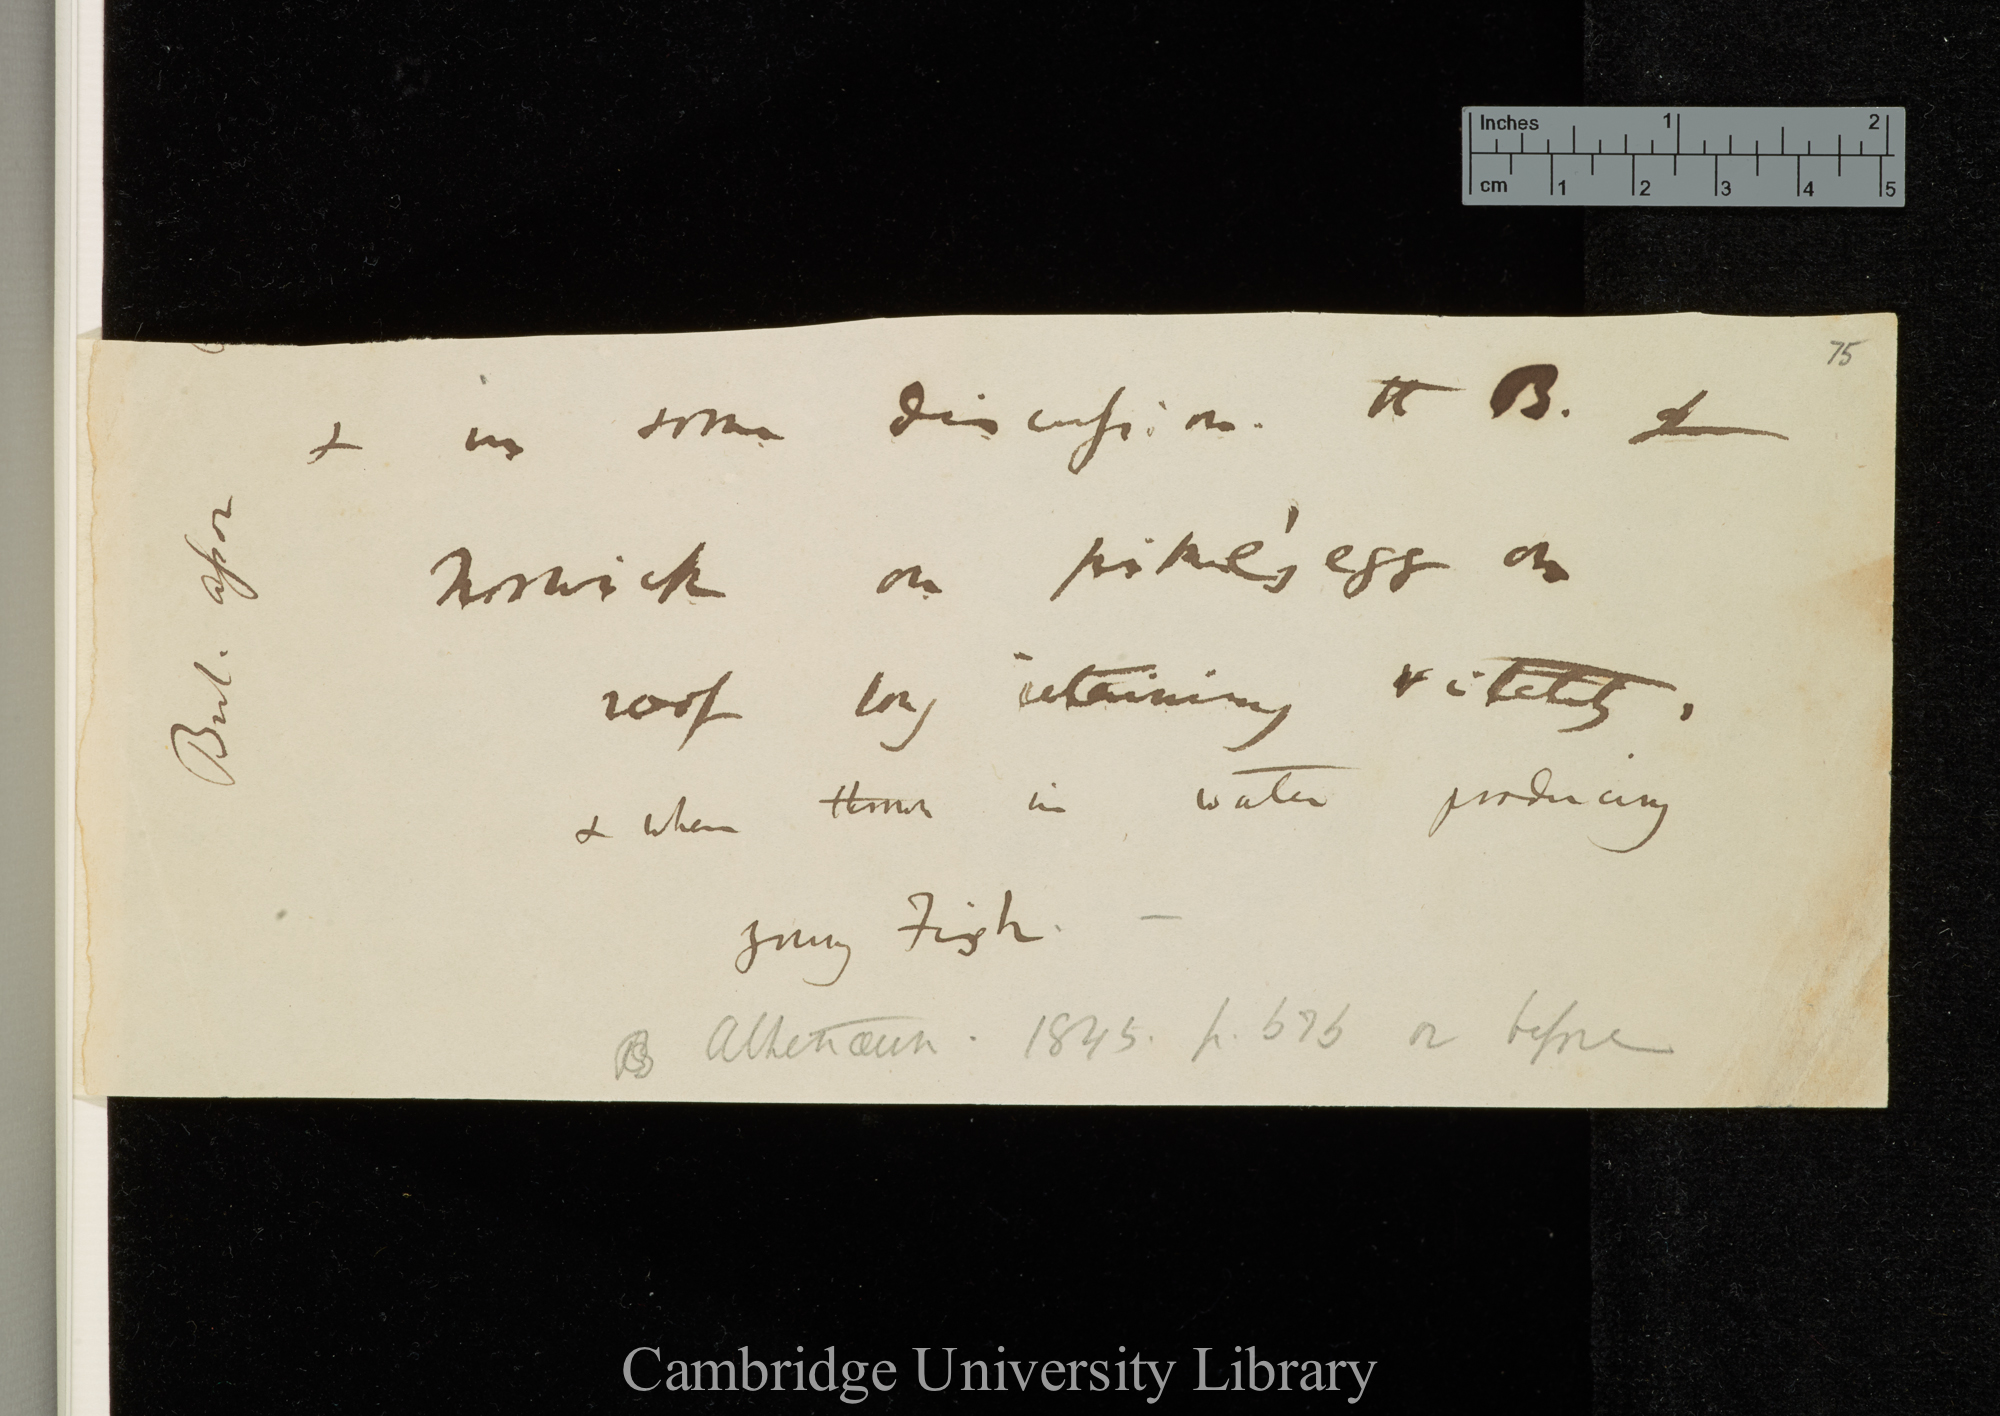 75
& in some discussion. the B. of
Norwich on pike's egg on
roof long retaining vitality,
& when thrown in water producing
young Fish. —
B Athenæum. 1845. p. 676 or before
Brit. assor
Inches 1 2
cm 1 2 3 4 5
Cambridge University Library